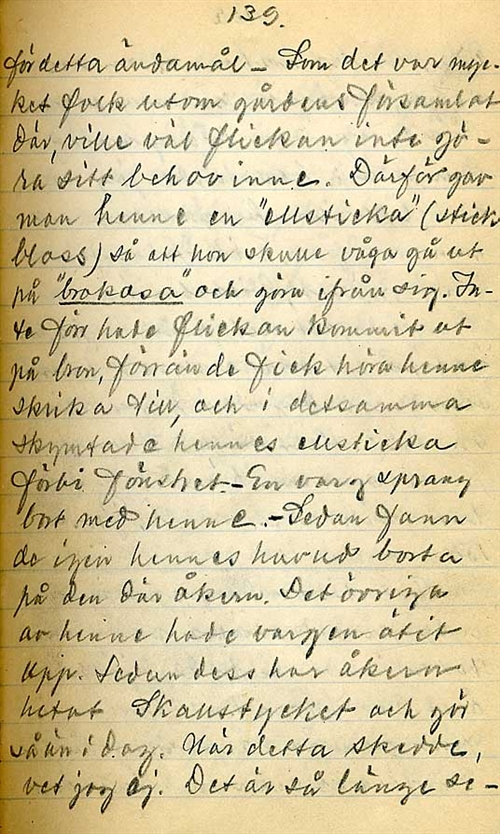 139.
för detta ändamål – Som det var myc-
ket folk utom gårdens församlat
där, ville väl flickan inte gö-
ra sitt behov inne. Därför gav
man henne en "ellsticka" (stick
bloss) så att hon skulle våga gå ut
på "brokasa" och göra ifrån sig. In-
te förr hade flickan kommit ut
på bron, förrän de fick höra henne
skrika till, och i detsamma
skymtade hennes ellsticka
förbi fönstret. – En varg sprang
bort med henne. – Sedan fann
de igen hennes huvud borta
på den där åkern. Det övriga
av henne hade vargen ätit
upp. Sedan dess har åkern
hetat Skallstycket och gör
så än i dag. När detta skedde,
vet jag ej. Det är så länge se-